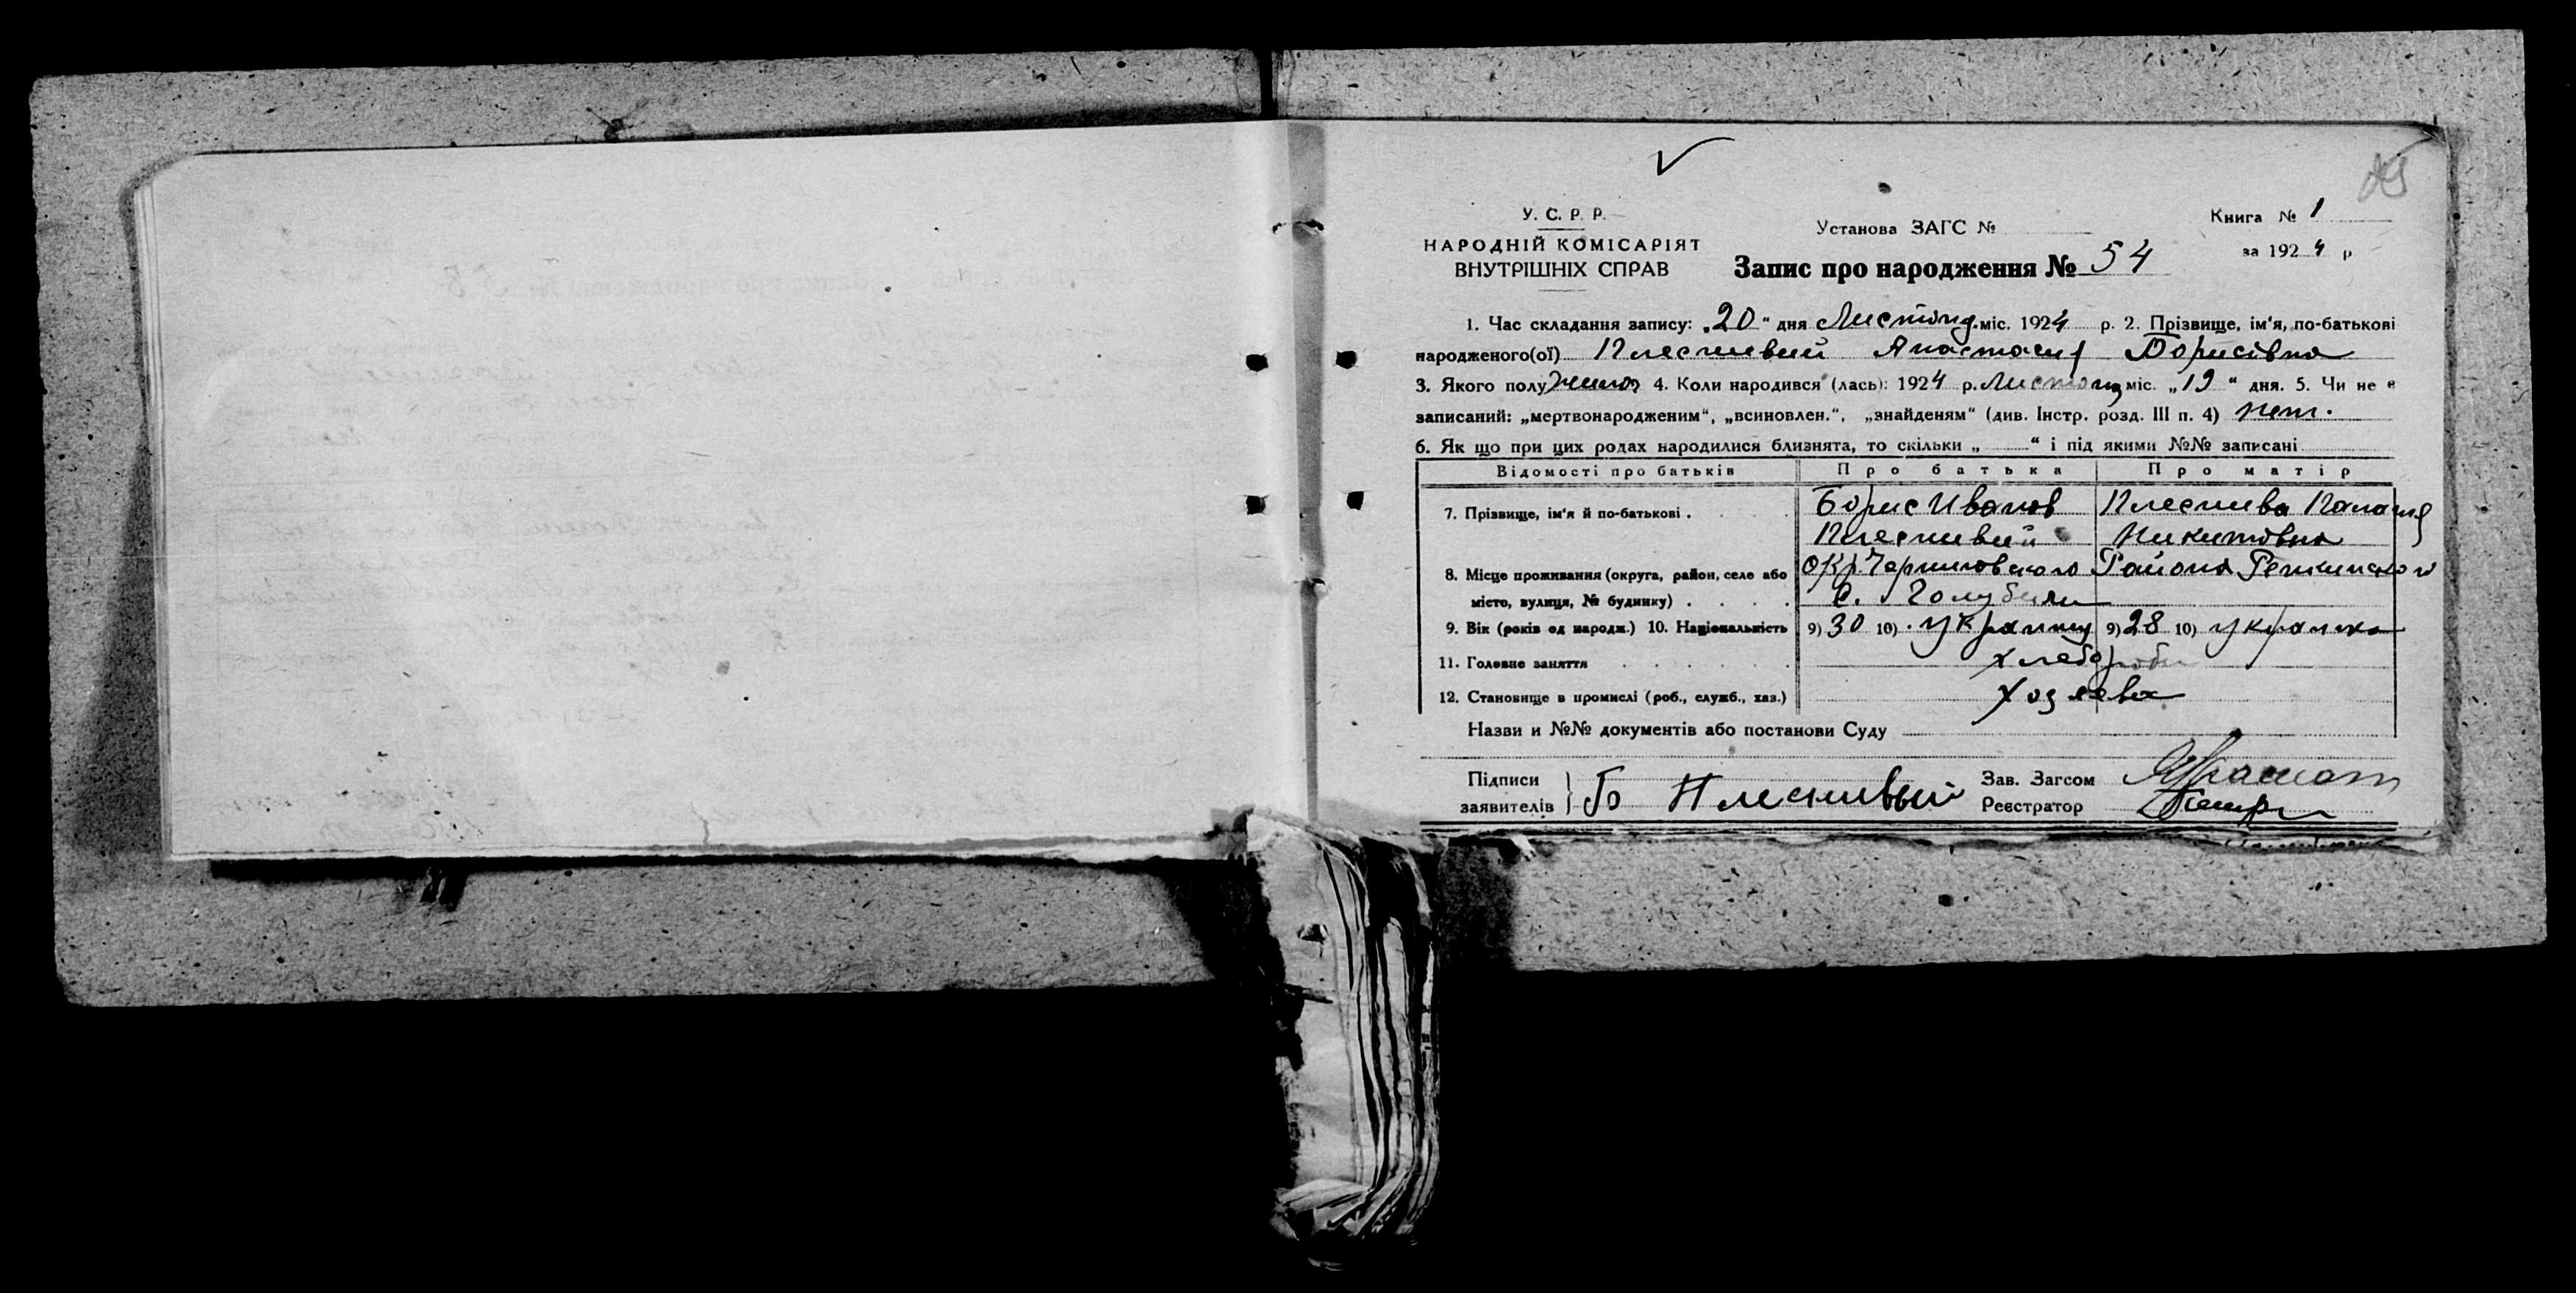 У. С. Р. Р.
НАРОДНІЙ КОМІСАРІЯТ
ВНУТРІШНІХ СПРАВ
Установа ЗАГС №
Запис про народження № 54
Книга № 1
за 1924 р
1. Час складання запису: „20“ дня Листопд. міс. 1924 р. 2. Прізвище, ім'я, по-батькові
народженого(ої) Плеснивий Анастасия Борисівна
3. Якого полу жіноч 4. Коли народився (лась): 1924 р. Листопд міс. „19“ дня. 5. Чи не є
записаний: „мертвонародженим“, „всиновлен.“, „знайденям“ (див. Інстр. розд. III п. 4) нет.
6. Як що при цих родах народилися близнята, то скільки „ “ і під якими №№ записані
Відомості про батьків Про батька Про матір
7. Прізвище, ім'я й по-батькові . Борис Иванов Плеснива Палагия
Плеснивий Никитовна
8. Місце проживання (округа, район, село або Окр. Черниговского Района Репкинского
місто, вулиця, № будинку) . . . . С. Голубичи
9. Вік (років од народж.) 10. Національність 9) 30 10) Украинец 9) 28 10) украинка
11. Головне заняття хлебороби
12. Становище в промислі (роб., служб., хаз.) Хозяева
Назви и №№ документів або постанови Суду
Підписи
заявителів } Б Плеснивый
Зав. Загсом
Реєстратор